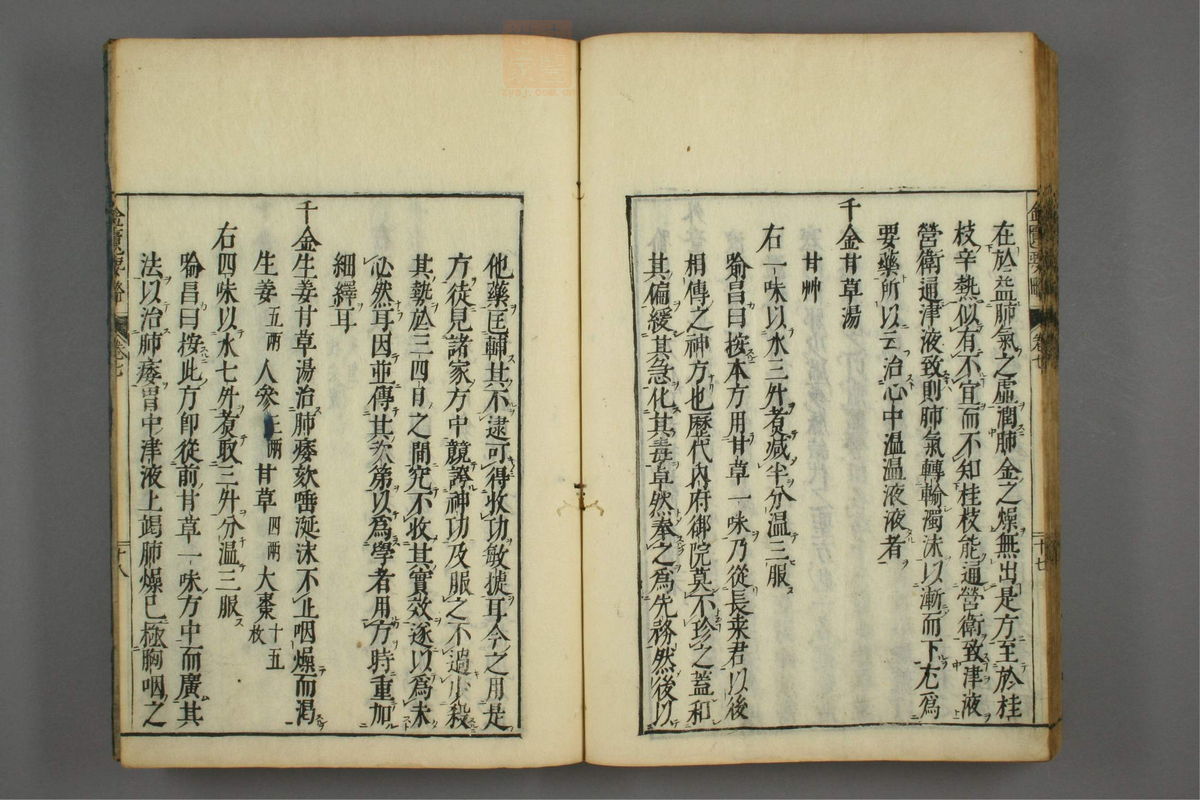 在於益肺氣之虛潤肺金之燥無出是方至於桂
枝辛熱似有不宜而不知桂枝能通營衛致津液
營衛通津液致則肺氣轉輸濁沫以漸而下尤爲
要藥所以云治心中温温液液者
千金甘草湯
甘艸
右一味以水三升煮减半分温三服
喻昌曰按本方用甘草一味乃從長桒君以後
相傳之神方也歷代內府御院莫不珍之蓋和
其偏緩其急化其毒卓然奉之爲先務然後以
金匱要畧 卷七 十七
他藥匡輔其不逮可得收功敏捷耳今之用是
方徒見諸家方中競誇神功及服之不過少殺
其勢於三四日之間究不收其實效遂以爲未
必然耳因並傳其次第以爲學者用方時重加
細繹耳
千金生姜甘草湯治肺痿欬唾涎沫不止咽燥而渴
生姜五兩 人參三兩 甘草四兩 大棗十五枚
右四味以水七升煮取三升分温三服
喻昌曰按此方卽從前甘草一味方中而廣其
法以治肺痿胃中津液上竭肺燥已極胸咽之
金匱要畧 卷七 十八